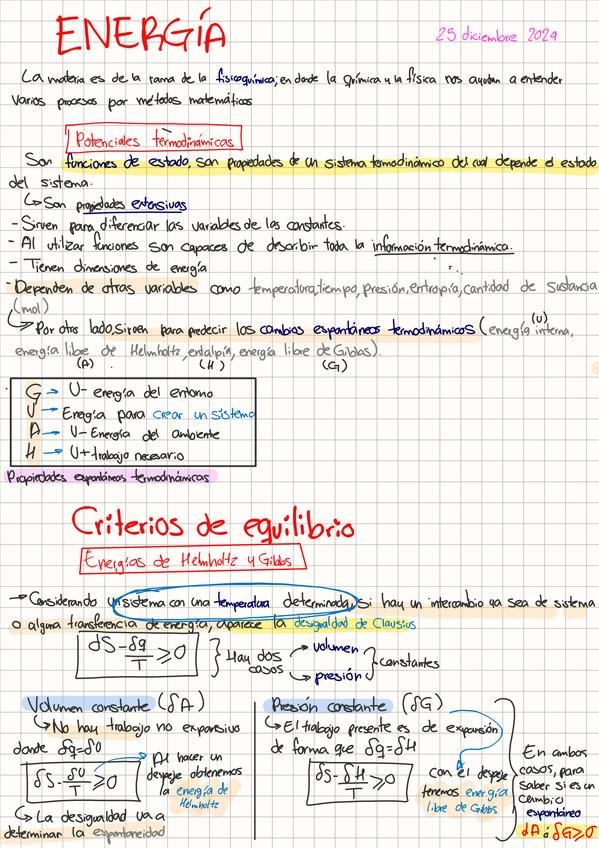 ENERGÍA
25 diciembre 2024
La materia es de la rama de la fisicoquímica; en donde la química y la física nos ayudan a entender
varios procesos por métodos matemáticos
Potenciales termodinámicas
Son funciones de estado, son propiedades de un sistema termodinámico del cual depende el estado
del sistema.
↳ Son propiedades extensivas
- Sirven para diferenciar las variables de las constantes.
- Al utilizar funciones son capaces de describir toda la información termodinámica.
- Tienen dimensiones de energía
- Dependen de otras variables como temperatura, tiempo, presión, entropía, cantidad de sustancia
(mol)
↳ Por otro lado, sirven para predecir los cambios espontáneos termodinámicos (energía interna, (U)
energía libre de Helmholtz, entalpía, energía libre de Gibbs).
(A) (H) (G)
G → U- energía del entorno
U → Energía para crear un sistema
A → U- Energía del ambiente
H → U+ trabajo necesario
Propiedades espontáneos termodinámicas
Criterios de equilibrio
Energías de Helmholtz y Gibbs
→ Considerando un sistema con una temperatura determinada, si hay un intercambio ya sea de sistema
o alguna transferencia de energía, aparece la desigualdad de Clausius
dS - δq/T ≥ 0
Hay dos casos
→ volumen
→ presión
constantes
Volumen constante (δA)
↳ No hay trabajo no expansivo
donde δq = δU
δS - δU/T ≥ 0
Al hacer un
despeje obtenemos
la energía de
Helmholtz
↳ La desigualdad va a
determinar la espontaneidad
Presión constante (δG)
↳ El trabajo presente es de expansión
de forma que δq = δH
δS - δH/T ≥ 0
con el despeje
tenemos energía
libre de Gibbs
En ambos
casos, para
saber si es un
cambio
espontáneo
dA ó δG ≥ 0